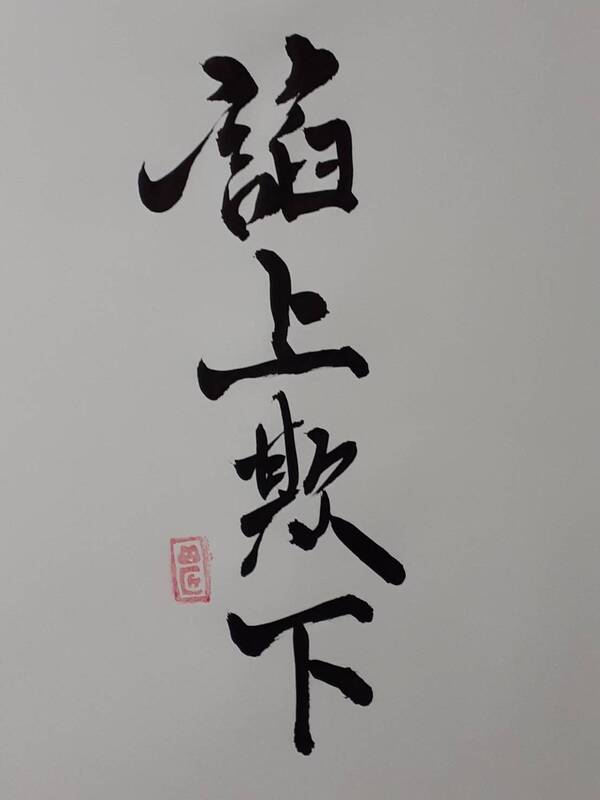 諂上欺下